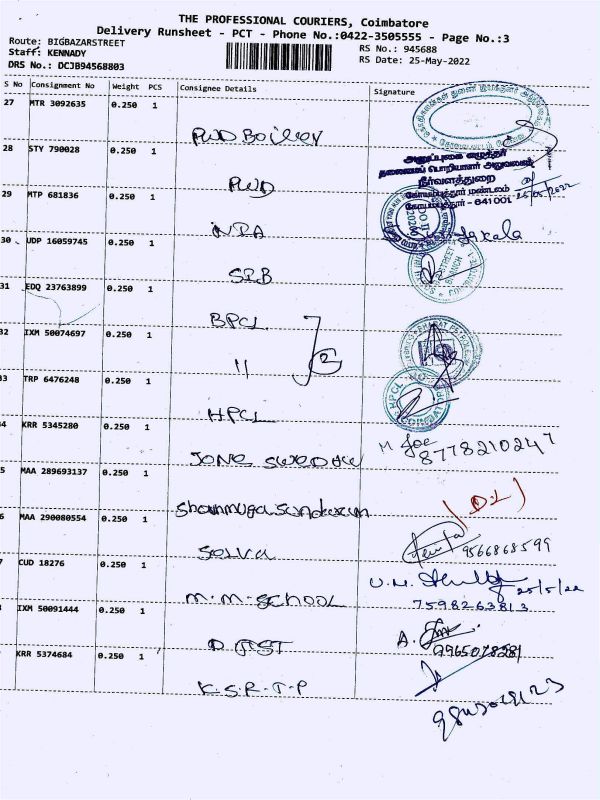 THE PROFESSIONAL COURIERS, Coimbatore
Delivery Runsheet - PCT - Phone No.:0422-3505555 - Page No.:3
Route: BIGBAZARSTREET
Staff: KENNADY
DRS No.: DCJB94568803
RS No.: 945688
RS Date: 25-May-2022
S No Consignment No Weight PCS Consignee Details Signature
27 MTR 3092635 0.250 1
PWD Boiler
28 STY 790028 0.250 1 PWD
அனுப்புகை எழுத்தர்
தலைமைப் பொறியாளர் அலுவலகம்
நீர்வளத்துறை
கோயம்புத்தூர் மண்டலம்
கோயம்புத்தூர் - 641001.
25/05/2022
29 MTP 681836 0.250 1
30 UDP 16059745 0.250 1
BRANCH
31 EDQ 23763899 0.250 1 BPCL
32 IXM 50074697 0.250 1 11 2
33 TRP 6476248 0.250 1 HPCL
HPCL
4 KRR 5345280 0.250 1
M Joe
8778210247
5 MAA 289693137 0.250 1 Shanmugasundaram
(D.L)
6 MAA 290080554 0.250 1 Selva
9566868599
7 CUD 18276 0.250 1 M.M-School
25/5/22
7598263813
IXM 50091444 0.250 1
A.
9965078281
KRR 5374684 0.250 1 K.S.R-T-P